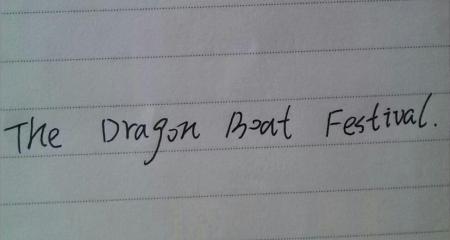 The Dragon Boat Festival.